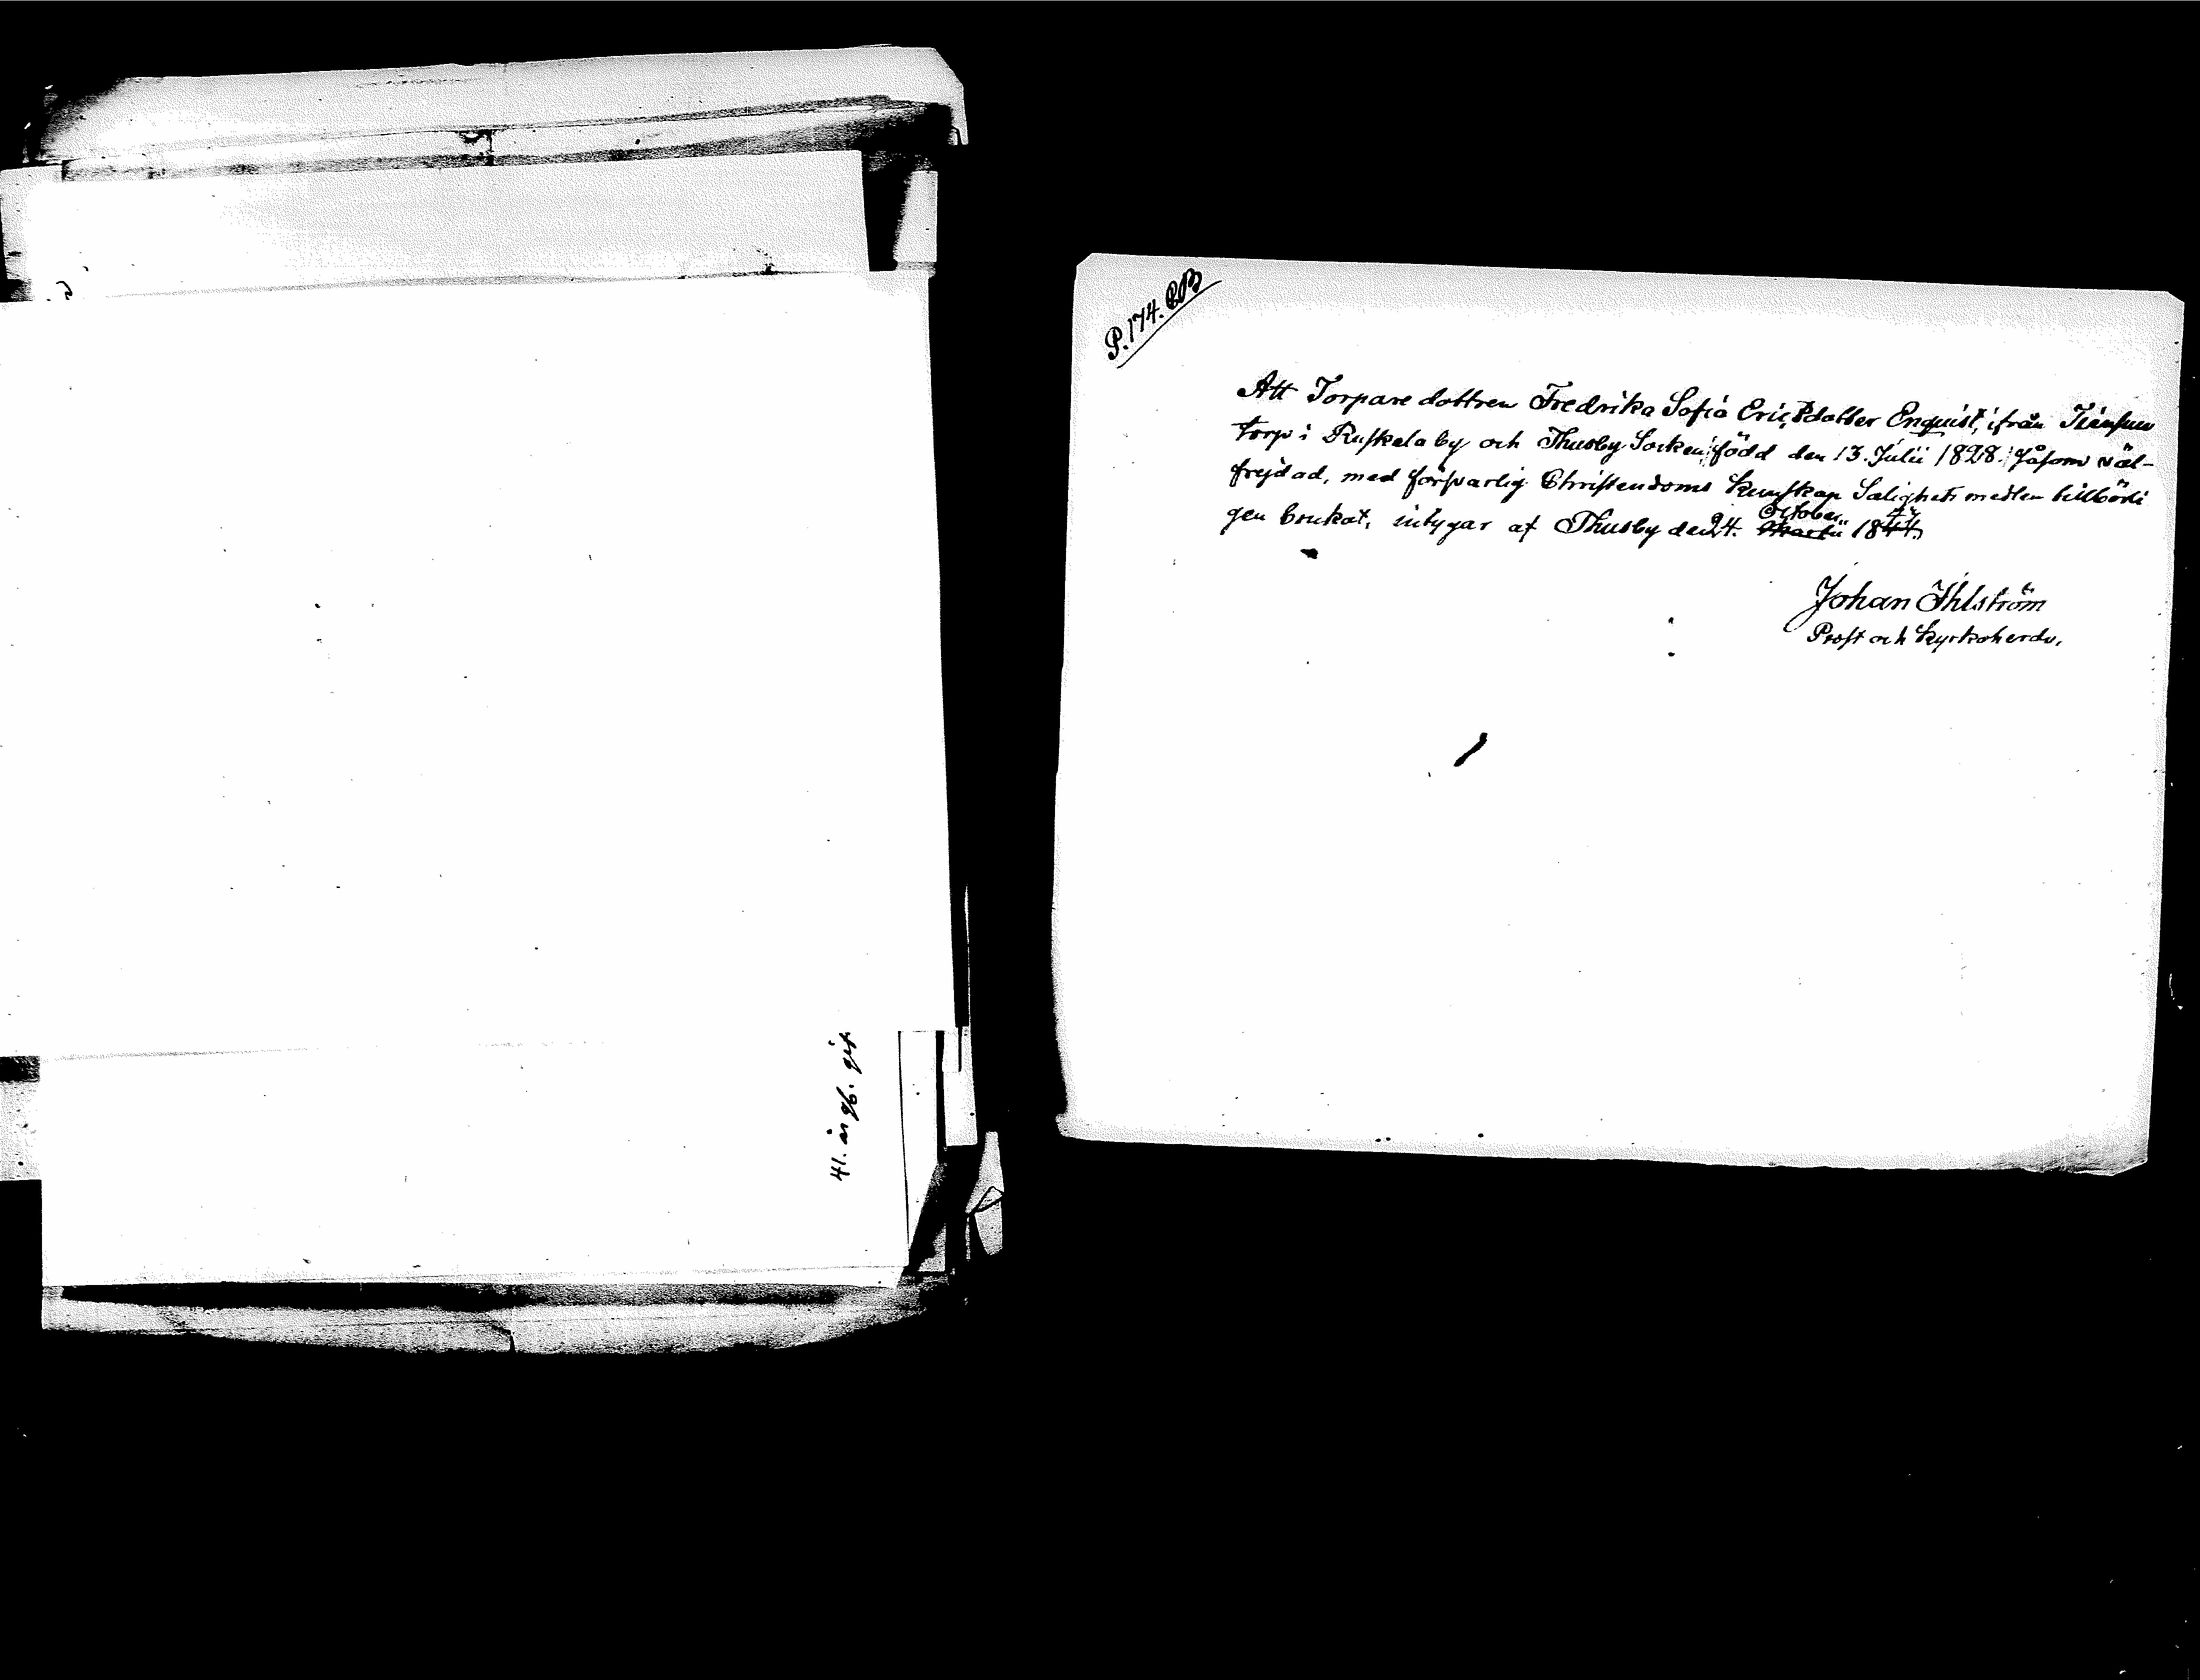 P. 174. CB
Att Torpare dottren Fredrika Sofia Ericsdotter Enquist, ifrån
torp i Ruskela by och Thusby Socken, född den 13. Julii 1828. Såsom väl-
frejdad, med försvarlig Christendoms kunskap Salighets medlen tillbörli
gen brukat, intygar af Thusby den 24. October Martii 1844.
Johan Ihlström
Prost och Kyrkoherde.
41. år